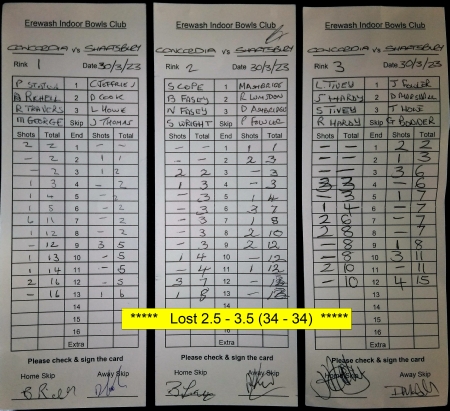 Erewash Indoor Bowls Club
CONCORDIA vs SHAFTSBURY
Rink 1 Date 30/3/23
1 C JEFFRIES
2 D COOK
R TRAVERS 3 L HOWE
M GEORGE Skip J THOMAS
Shots Total End Shots Total
2 2 1 - -
- 2 2 1 1
- 2 3 1 2
1 3 4 - 2
5 - 2
1 5 6 - 2
6 11 7 - 2
1 12 8 - 2
- 12 9 3 5
1 13 10 - 5
1 14 11 - 5
2 16 12 - 5
- 16 13 1 6
14
15
16
Extra
Please check & sign the card
Home Skip Away Skip
Erewash Indoor Bowls Club
CONCORDIA vs SHAFTSBURY
Rink 2 Date 30/3/23
S COPE 1
B FASEY 2 R LUMSDON
N FASEY 3
S WRIGHT Skip P FOWLER
Shots Total End Shots Total
- - 1 1 1
- - 2 2 3
2 2 3 - 3
1 3 4 - 3
- 3 5 1 4
- 3 6 3 7
- 3 7 1 8
- 3 8 2 10
- 3 9 2 12
1 4 10 - 12
- 4 11 1 12
3 7 12 - 12
1 8 13 - 12
14
15
16
Extra
Please check & sign the card
Home Skip Away Skip
Erewash Indoor Bowls Club
CONCORDIA vs SHAFTSBURY
Rink 3 Date 30/3/23
L TIVEY 1 J FOWLER
S HARDY 2
S TIVEY 3 T HONE
R HARDY Skip G BODDER
Shots Total End Shots Total
- - 1 2 2
- - 2 1 3
- - 3 3 6
3 3 4 - 6
- 3 5 1 7
1 4 6 - 7
2 6 7 - 7
2 8 8 - 7
- 8 9 1 8
- 8 10 3 11
2 10 11 - 11
- 10 12 4 15
13
14
15
16
Extra
Please check & sign the card
Home Skip Away Skip
***** Lost 2.5 - 3.5 (34 - 34) *****